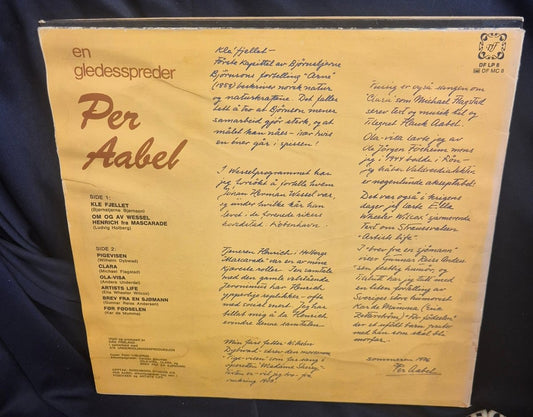 en
gledesspreder
Per
Aabel
SIDE 1:
KLE FJELLET
(Bjørnstjerne Bjørnson)
OM OG AV WESSEL
HENRICH fra MASCARADE
(Ludvig Holberg)
SIDE 2:
PIGEVISEN
(Wilhelm Dybwad)
CLARA
(Michael Flagstad)
OLA-VISA
(Anders Underdal)
ARTISTS LIFE
(Ella Wheeler Wilcox)
BREV FRA EN SJØMANN
(Gunnar Reiss Andersen)
FØR FØDSELEN
(Kar de Mumma)
Klé fjellet –
Første kapittel av Bjørnstjerne
Bjørnsons fortelling "Arne"
beskrives norsk natur
og naturkreftene. Det faller
lett å tro at Bjørnson mener
samarbeid gjør sterk, og at
målet kan nåes – hvis
en bær går i spissen!
I Wesselprogrammet har
jeg forsøkt å fortelle hvem
Johan Herman Wessel var,
og under hvilke kår han
levet i de forenede rikers
hovedstad København.
Tjeneren Henrich i Holbergs
"Mascarade" var en av mine
kjæreste roller. I en samtale
med den gamle
Jeronimus har Henrich
ypperlige replikker – ofte
med sosial snert. Jeg har
tillatt meg å la Henrich
erindre denne samtalen.
Min fars fetter Wilhelm
Dybwad, skrev den morsomme
"Pige-visen" som far sang i
operetten "Madame Sherry"
Morsom er også sangen om
"Clara" som Michael Flagstad
skrev text og musikk til og
tilegnet Hauk Aabel.
Ola-visa lærte jeg av
Ola Jørgen Fosheim
jeg i 1944 bodde i Røn –
jeg håper Valdresdialekten
er nogenlunde akseptabel!
Det var også i krigens
dager jeg lærte Ella
Wheeler Wilcox' sjarmerende
text om Straussvalsen
"Artists life".
I "brev fra en sjømann"
viser Gunnar Reiss Ander-
sen freidig humør, og
tilslutt har jeg tatt med
en liten fortelling av
Sveriges store humorist
Kar de Mumma (Erik
Zetterström) "Før fødselen"
er et ufødt barn
med han som skal bli
morfar.
sommeren 1976
Per Aabel
DF LP 8
DF MC 8